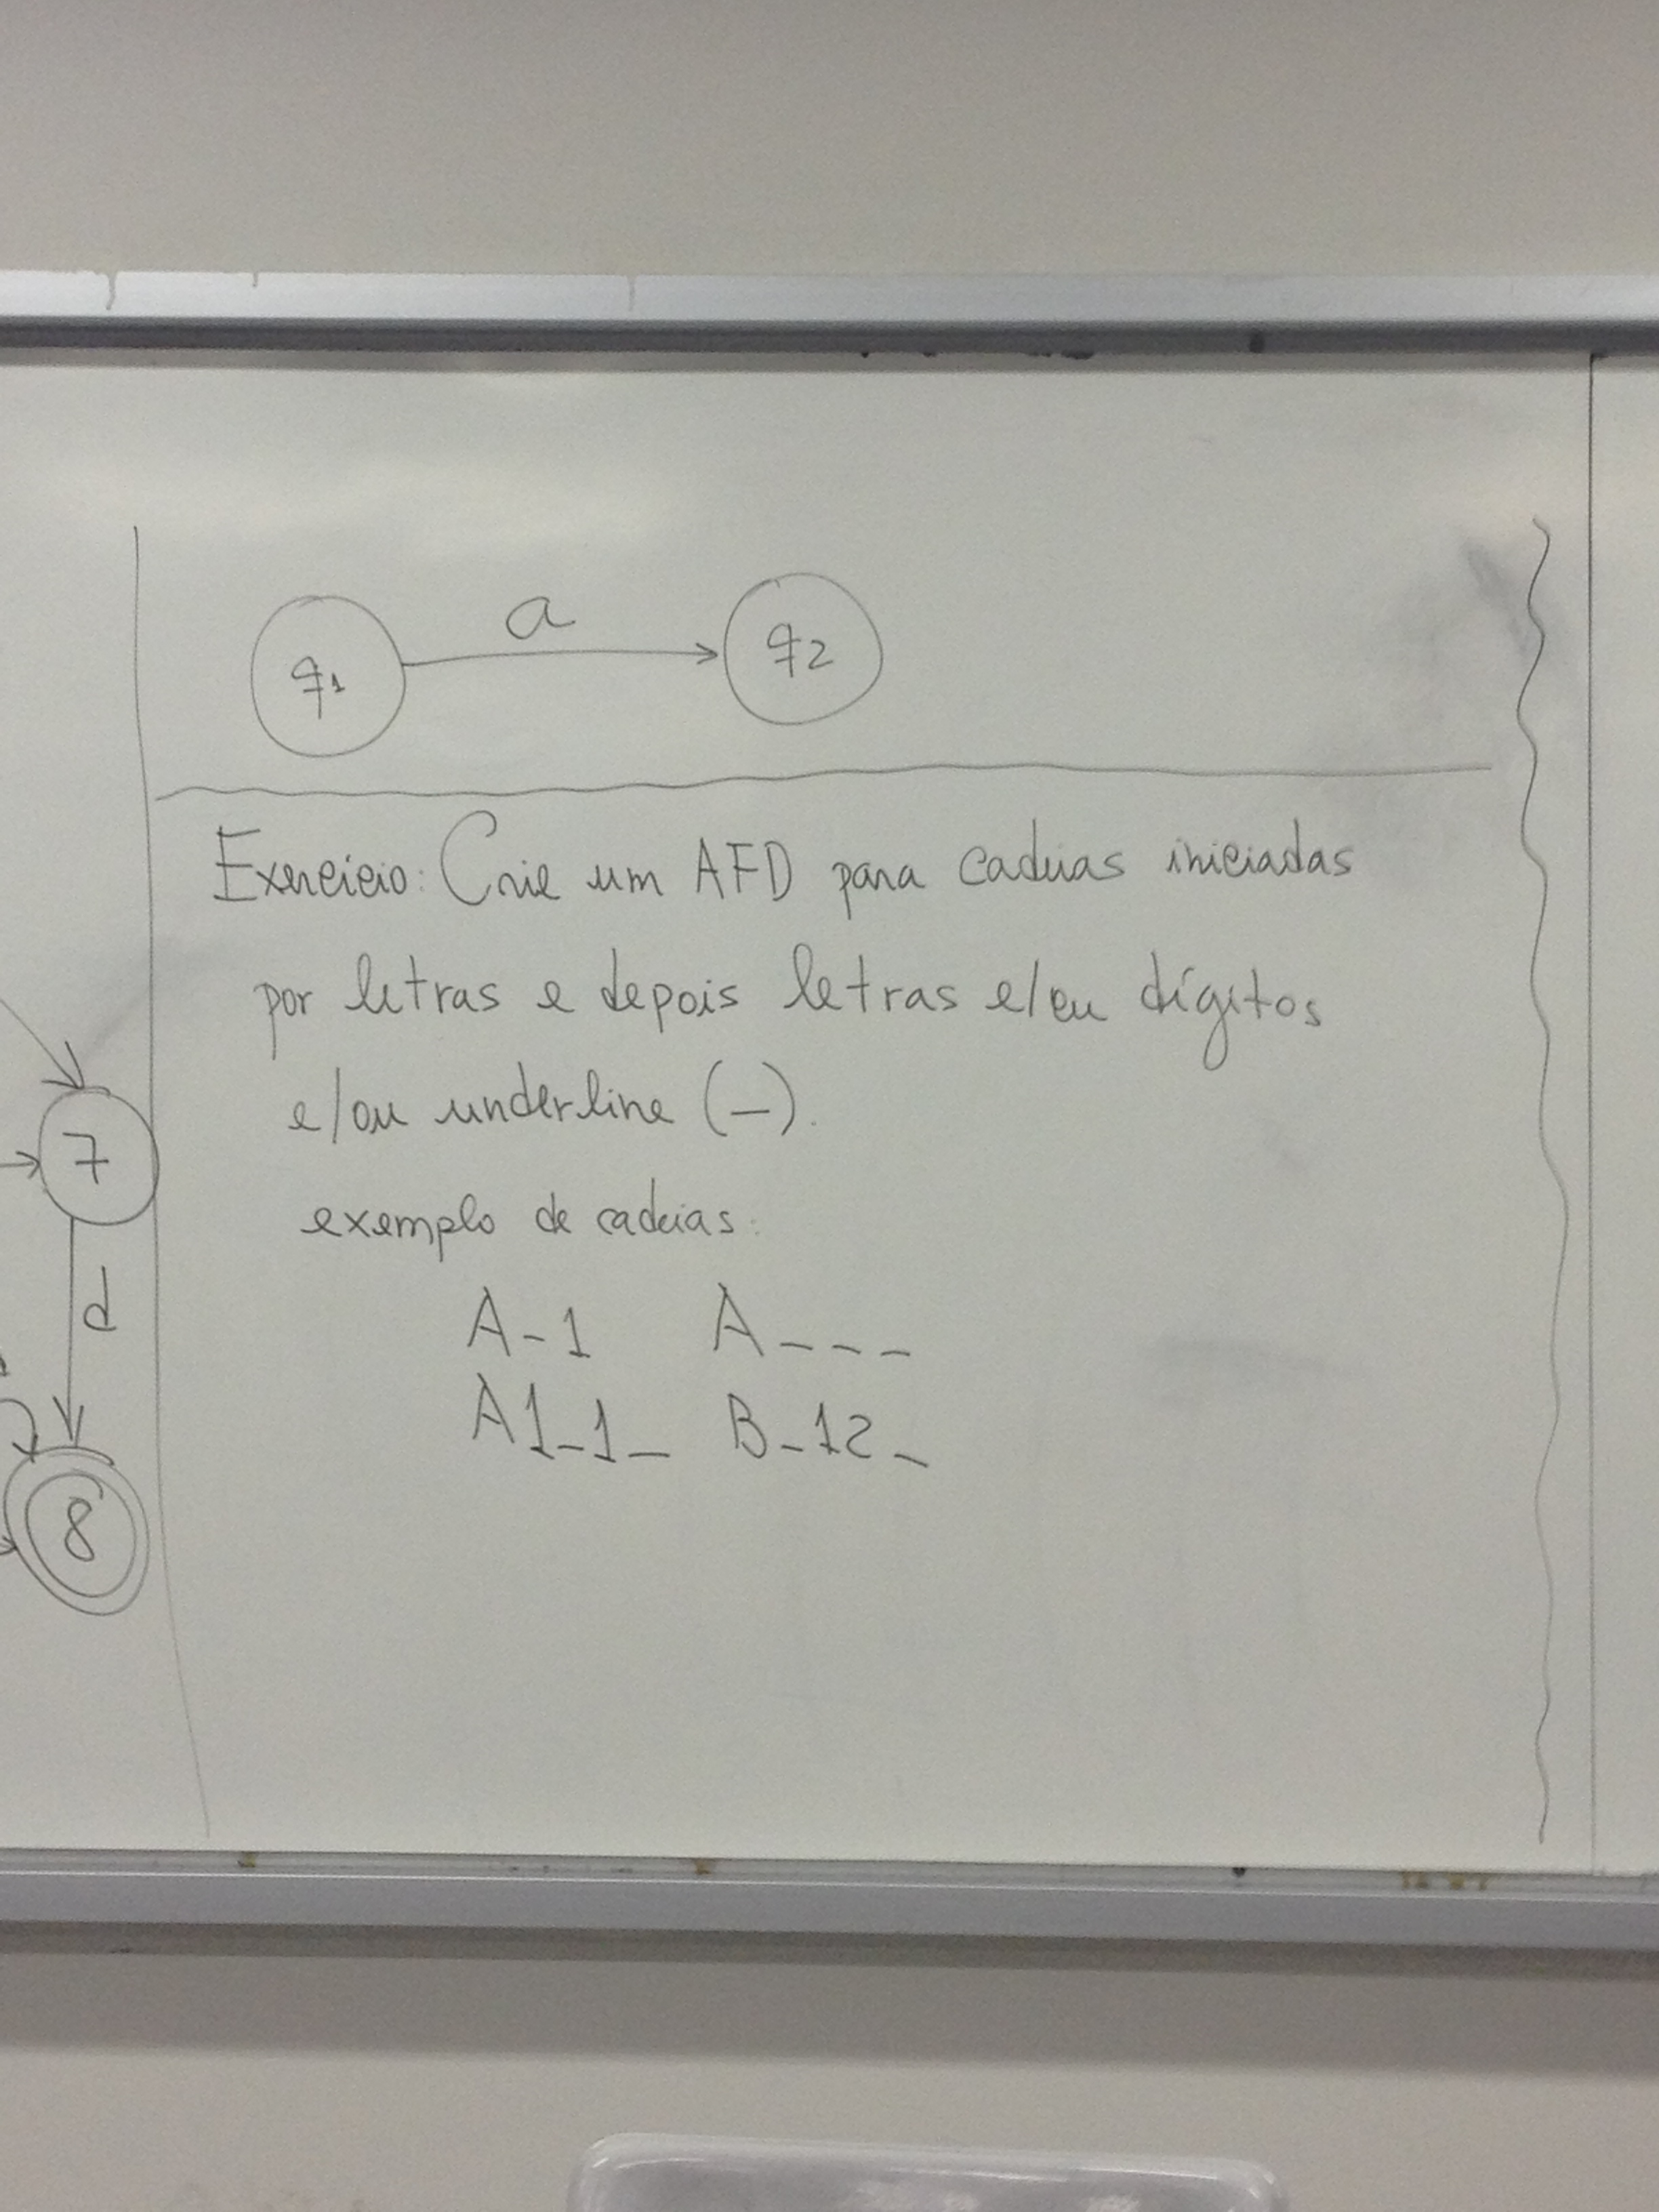 a
q1 q2
Exercício: Crie um AFD para cadeias iniciadas
por letras e depois letras e/ou dígitos
e/ou underline (_).
exemplo de cadeias:
A_1 A___
A1_1_ B_12_
7
d
8